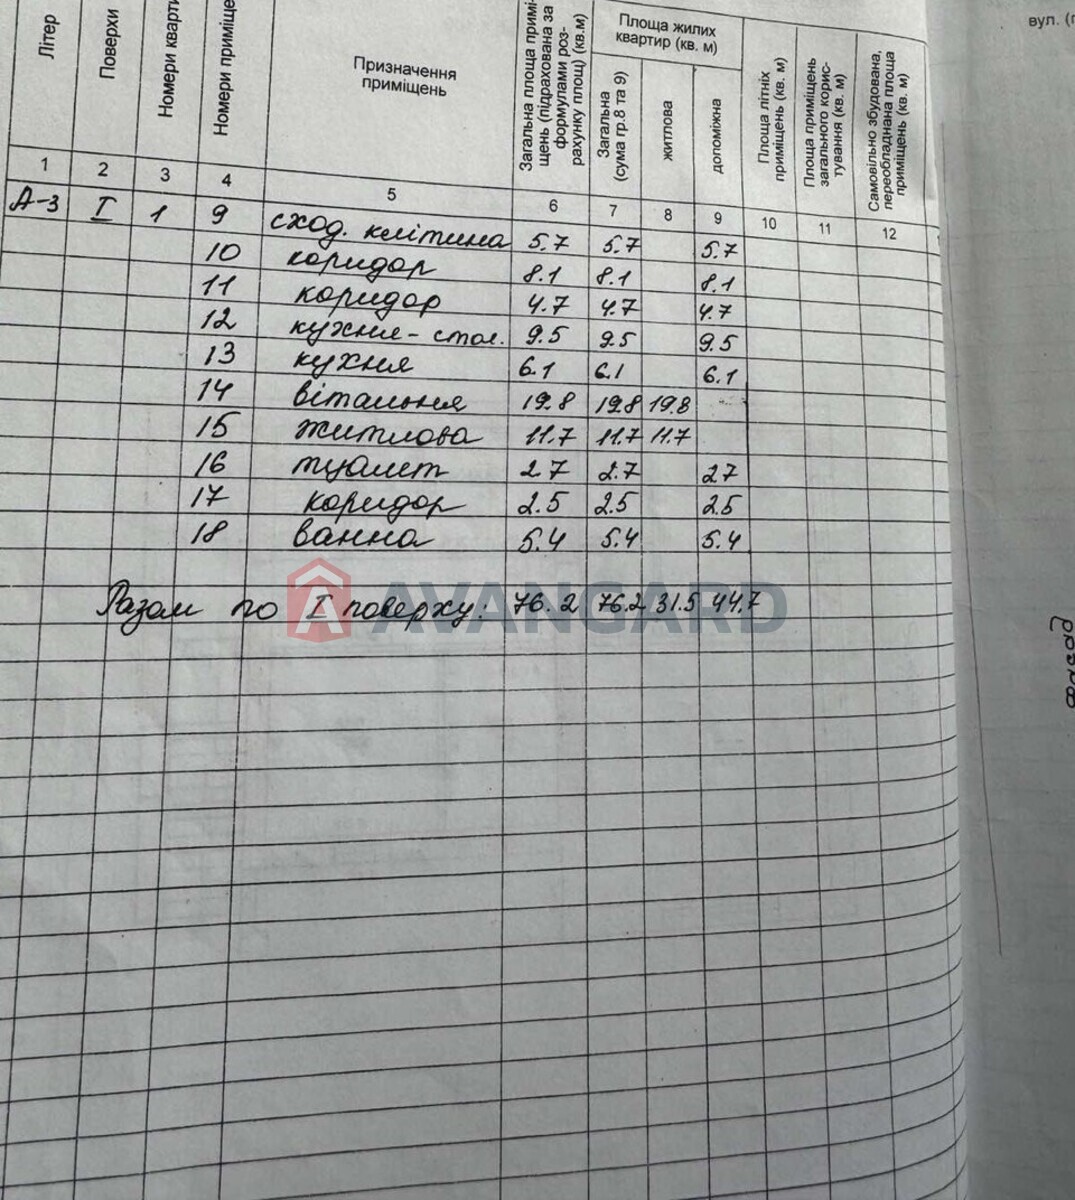 Літер
Поверхи
Номери кварти
Номери приміще
Призначення
приміщень
Загальна площа примі-
щень (підрахована за
формулами роз-
рахунку площ) (кв.м)
Площа жилих
квартир (кв. м)
Загальна
(сума гр.8 та 9)
житлова
допоміжна
Площа літніх
приміщень (кв. м)
Площа приміщень
загального корис-
тування (кв. м)
Самовільно збудована,
переобладнана площа
приміщень (кв. м)
1 2 3 4 5 6 7 8 9 10 11 12
А-3 І 1 9 сход. клітина 5.7 5.7 5.7
10 коридор 8.1 8.1 8.1
11 коридор 4.7 4.7 4.7
12 кухня-стол. 9.5 9.5 9.5
13 кухня 6.1 6.1 6.1
14 вітальня 19.8 19.8 19.8
15 житлова 11.7 11.7 11.7
16 туалет 2.7 2.7 2.7
17 коридор 2.5 2.5 2.5
18 ванна 5.4 5.4 5.4
Разом по І поверху: 76.2 76.2 31.5 44.7
AVANGARD
вул. (
фасад